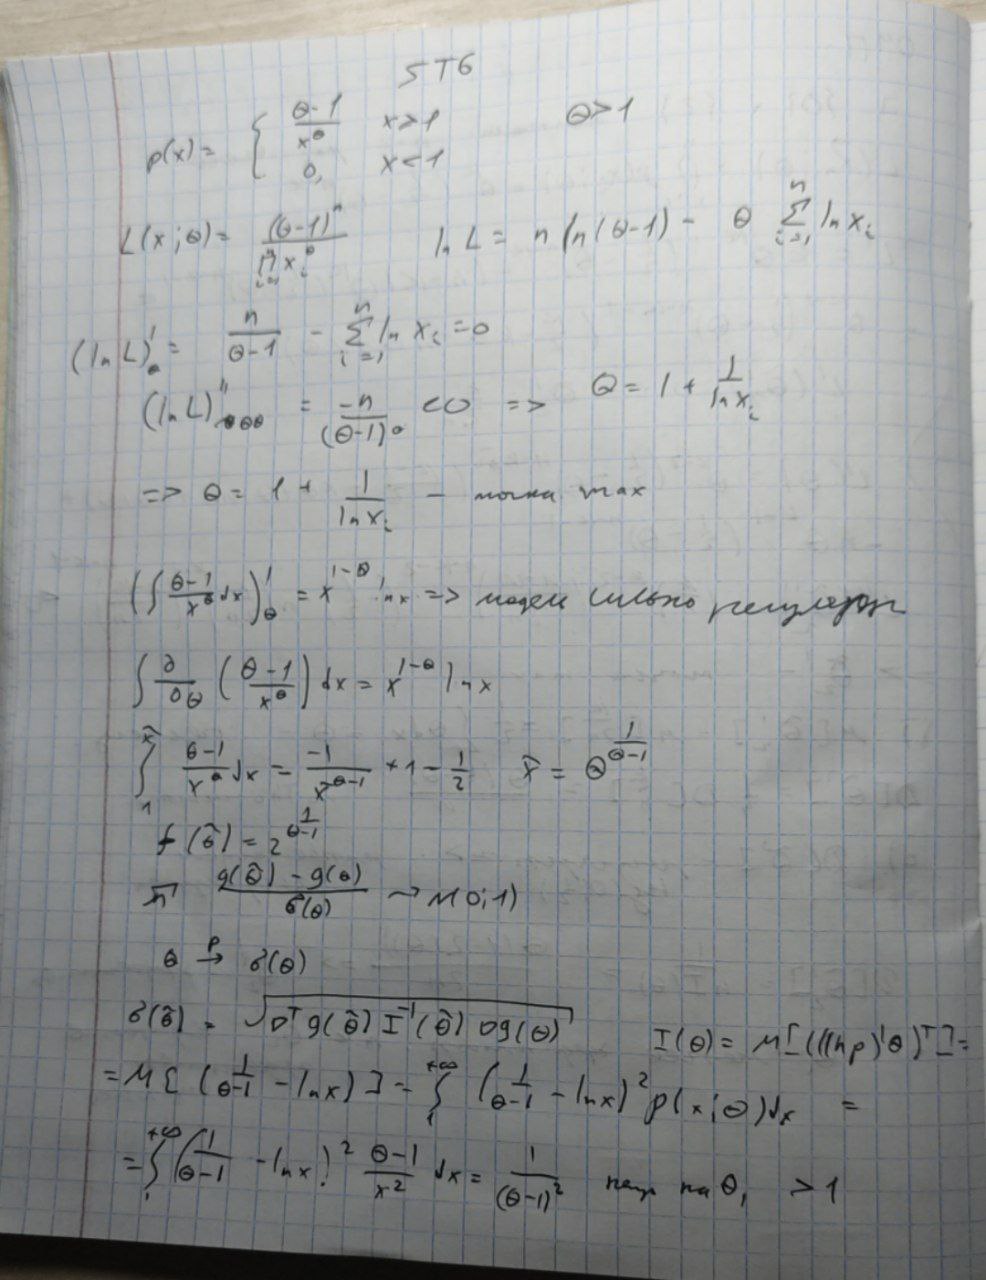 5T6
p(x) = { (θ-1)/x^θ x>1 θ>1
0, x<1
L(x;θ) = (θ-1)^n / ∏_{i=1}^n x_i^θ ln L = n ln(θ-1) - θ ∑_{i=1}^n ln x_i
(ln L)'_θ = n/(θ-1) - ∑_{i=1}^n ln x_i = 0
(ln L)''_θθ = -n/(θ-1)^θ <0 => θ = 1 + 1/ln x_i
=> θ = 1 + 1/ln x_i - точка max
(∫ (θ-1)/x^θ dx)'_θ = x^{1-θ} ln x => модель сильно регулярн
∫ ∂/∂θ ((θ-1)/x^θ) dx = x^{1-θ} ln x
∫_1^x̃ (θ-1)/x^θ dx = -1/x̃^{θ-1} + 1 - 1/2 x̃ = θ^{1/(θ-1)}
f(θ̃) = 2^{1/(θ-1)}
√n (g(θ̃) - g(θ))/σ(θ) → N(0;1)
θ →^P σ(θ)
σ(θ̃) = √(∇^T g(θ̃) I^{-1}(θ̃) ∇g(θ)) I(θ) = M[(((ln p)'θ)^T] =
= M[(1/(θ-1) - ln x)] = ∫_1^{+∞} (1/(θ-1) - ln x)^2 p(x;θ) dx =
= ∫_1^{+∞} (1/(θ-1) - ln x)^2 (θ-1)/x^2 dx = 1/(θ-1)^2 непр на θ, >1